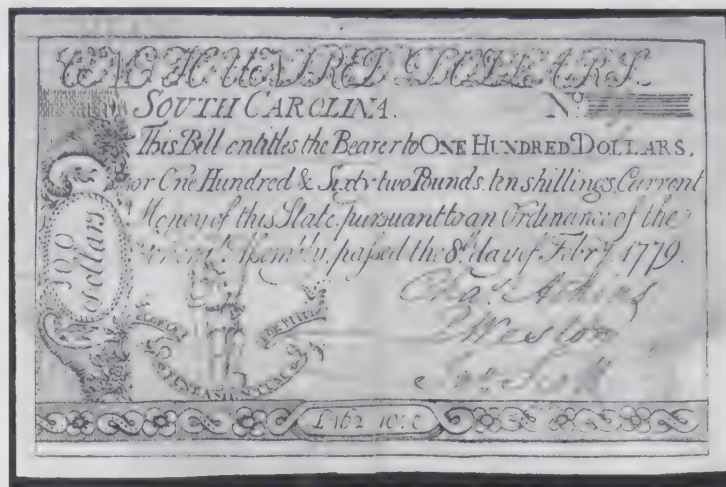 ONE HUNDRED DOLLARS.
SOUTH CAROLINA. No
This Bill entitles the Bearer to ONE HUNDRED DOLLARS,
or One Hundred & Sixty-two Pounds, ten shillings, Current
Money of this State, pursuant to an Ordinance of the
Assembly, passed the 8th day of Febry. 1779.
100
Dollars
Chas. Atkins
Weston
Scott
£162 10s